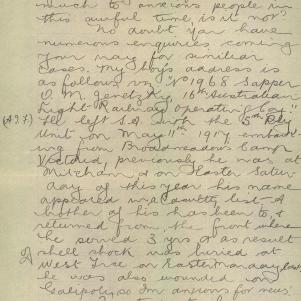 much to anxious people in
this awful time, is it not?
No doubt you have
numerous enquiries coming
your way for similar
cases. My boy's address is
as follows, viz, "No 1968 Sapper
O. M. Genet, 16th Australian
Light Railway Operating Coy"
(A.I.F) He left S.A. with the 5th Rly
Unit on May 11th 1917 embark-
ing from Broadmeadows Camp
Victoria, previously he was at
Mitcham, & on Easter Satur-
day of this year his name
appeared in a casualty list. A
brother of his has been to, &
returned from, the front where
he served 3 yrs & as result
of shell shock was buried at
West Tce on Easter Monday last
he was also wounded on
Galipoli, so I'm anxious for news